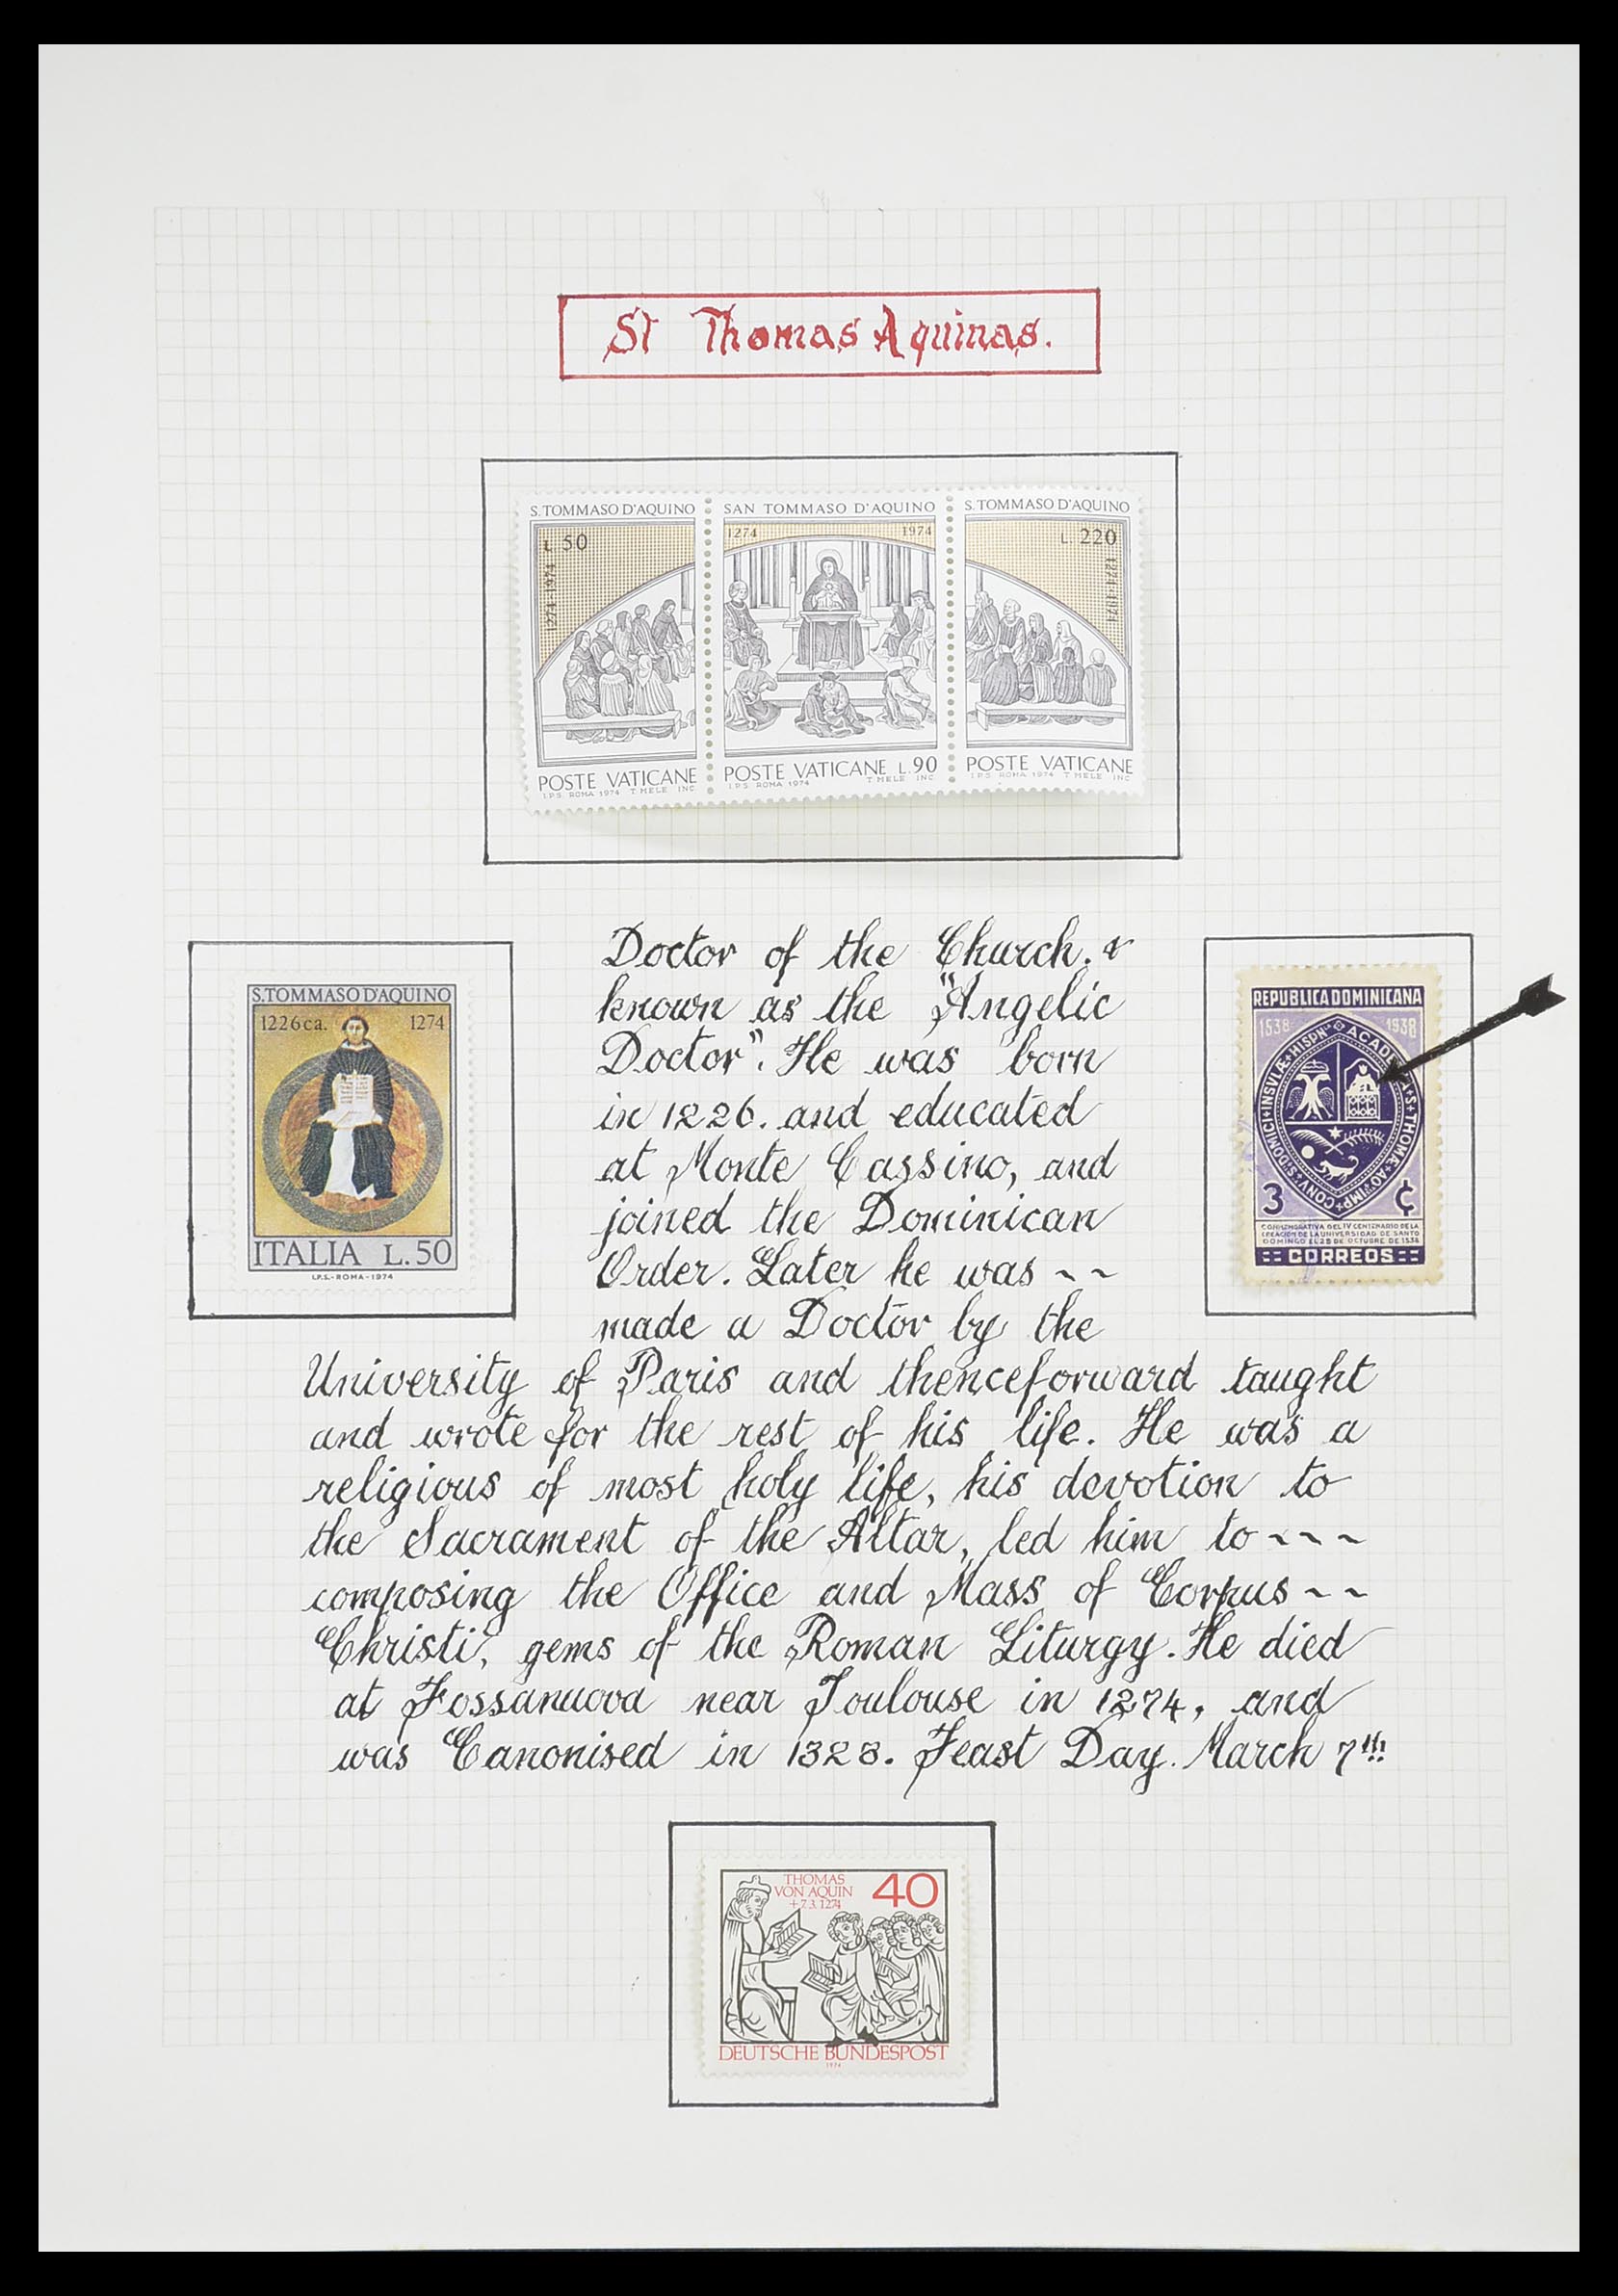 St Thomas Aquinas.
S. TOMMASO D'AQUINO
L. 50
1274-1974
POSTE VATICANE
I.P.S. ROMA 1974 T. MELE INC.
SAN TOMMASO D'AQUINO
1274 1974
POSTE VATICANE L. 90
I.P.S. ROMA 1974 T. MELE INC.
S. TOMMASO D'AQUINO
L. 220
1274-1974
POSTE VATICANE
I.P.S. ROMA 1974 T. MELE INC.
S. TOMMASO D'AQUINO
1226 ca. 1274
ITALIA L. 50
I.P.S. - ROMA - 1974
Doctor of the Church. &
known as the "Angelic
Doctor". He was born
in 1226. and educated
at Monte Cassino, and
joined the Dominican
Order. Later he was ~ ~
made a Doctor by the
University of Paris and thenceforward taught
and wrote for the rest of his life. He was a
religious of most holy life, his devotion to
the Sacrament of the Altar, led him to ~ ~ ~
composing the Office and Mass of Corpus ~ ~
Christi, gems of the Roman Liturgy. He died
at Fossanuova near Toulouse in 1274, and
was Canonised in 1323. Feast Day. March 7th
REPUBLICA DOMINICANA
1538 1938
CONV·S·DOMICI·INSVLÆ·HISPN
S·THOMÆ·AQ·IMP·
3 ¢
CONMEMORATIVA DEL IV CENTENARIO DE LA
CREACION DE LA UNIVERSIDAD DE SANTO
DOMINGO EL 28 DE OCTUBRE DE 1538
CORREOS
THOMAS
VON AQUIN
+ 7.3.1274
40
DEUTSCHE BUNDESPOST
1974